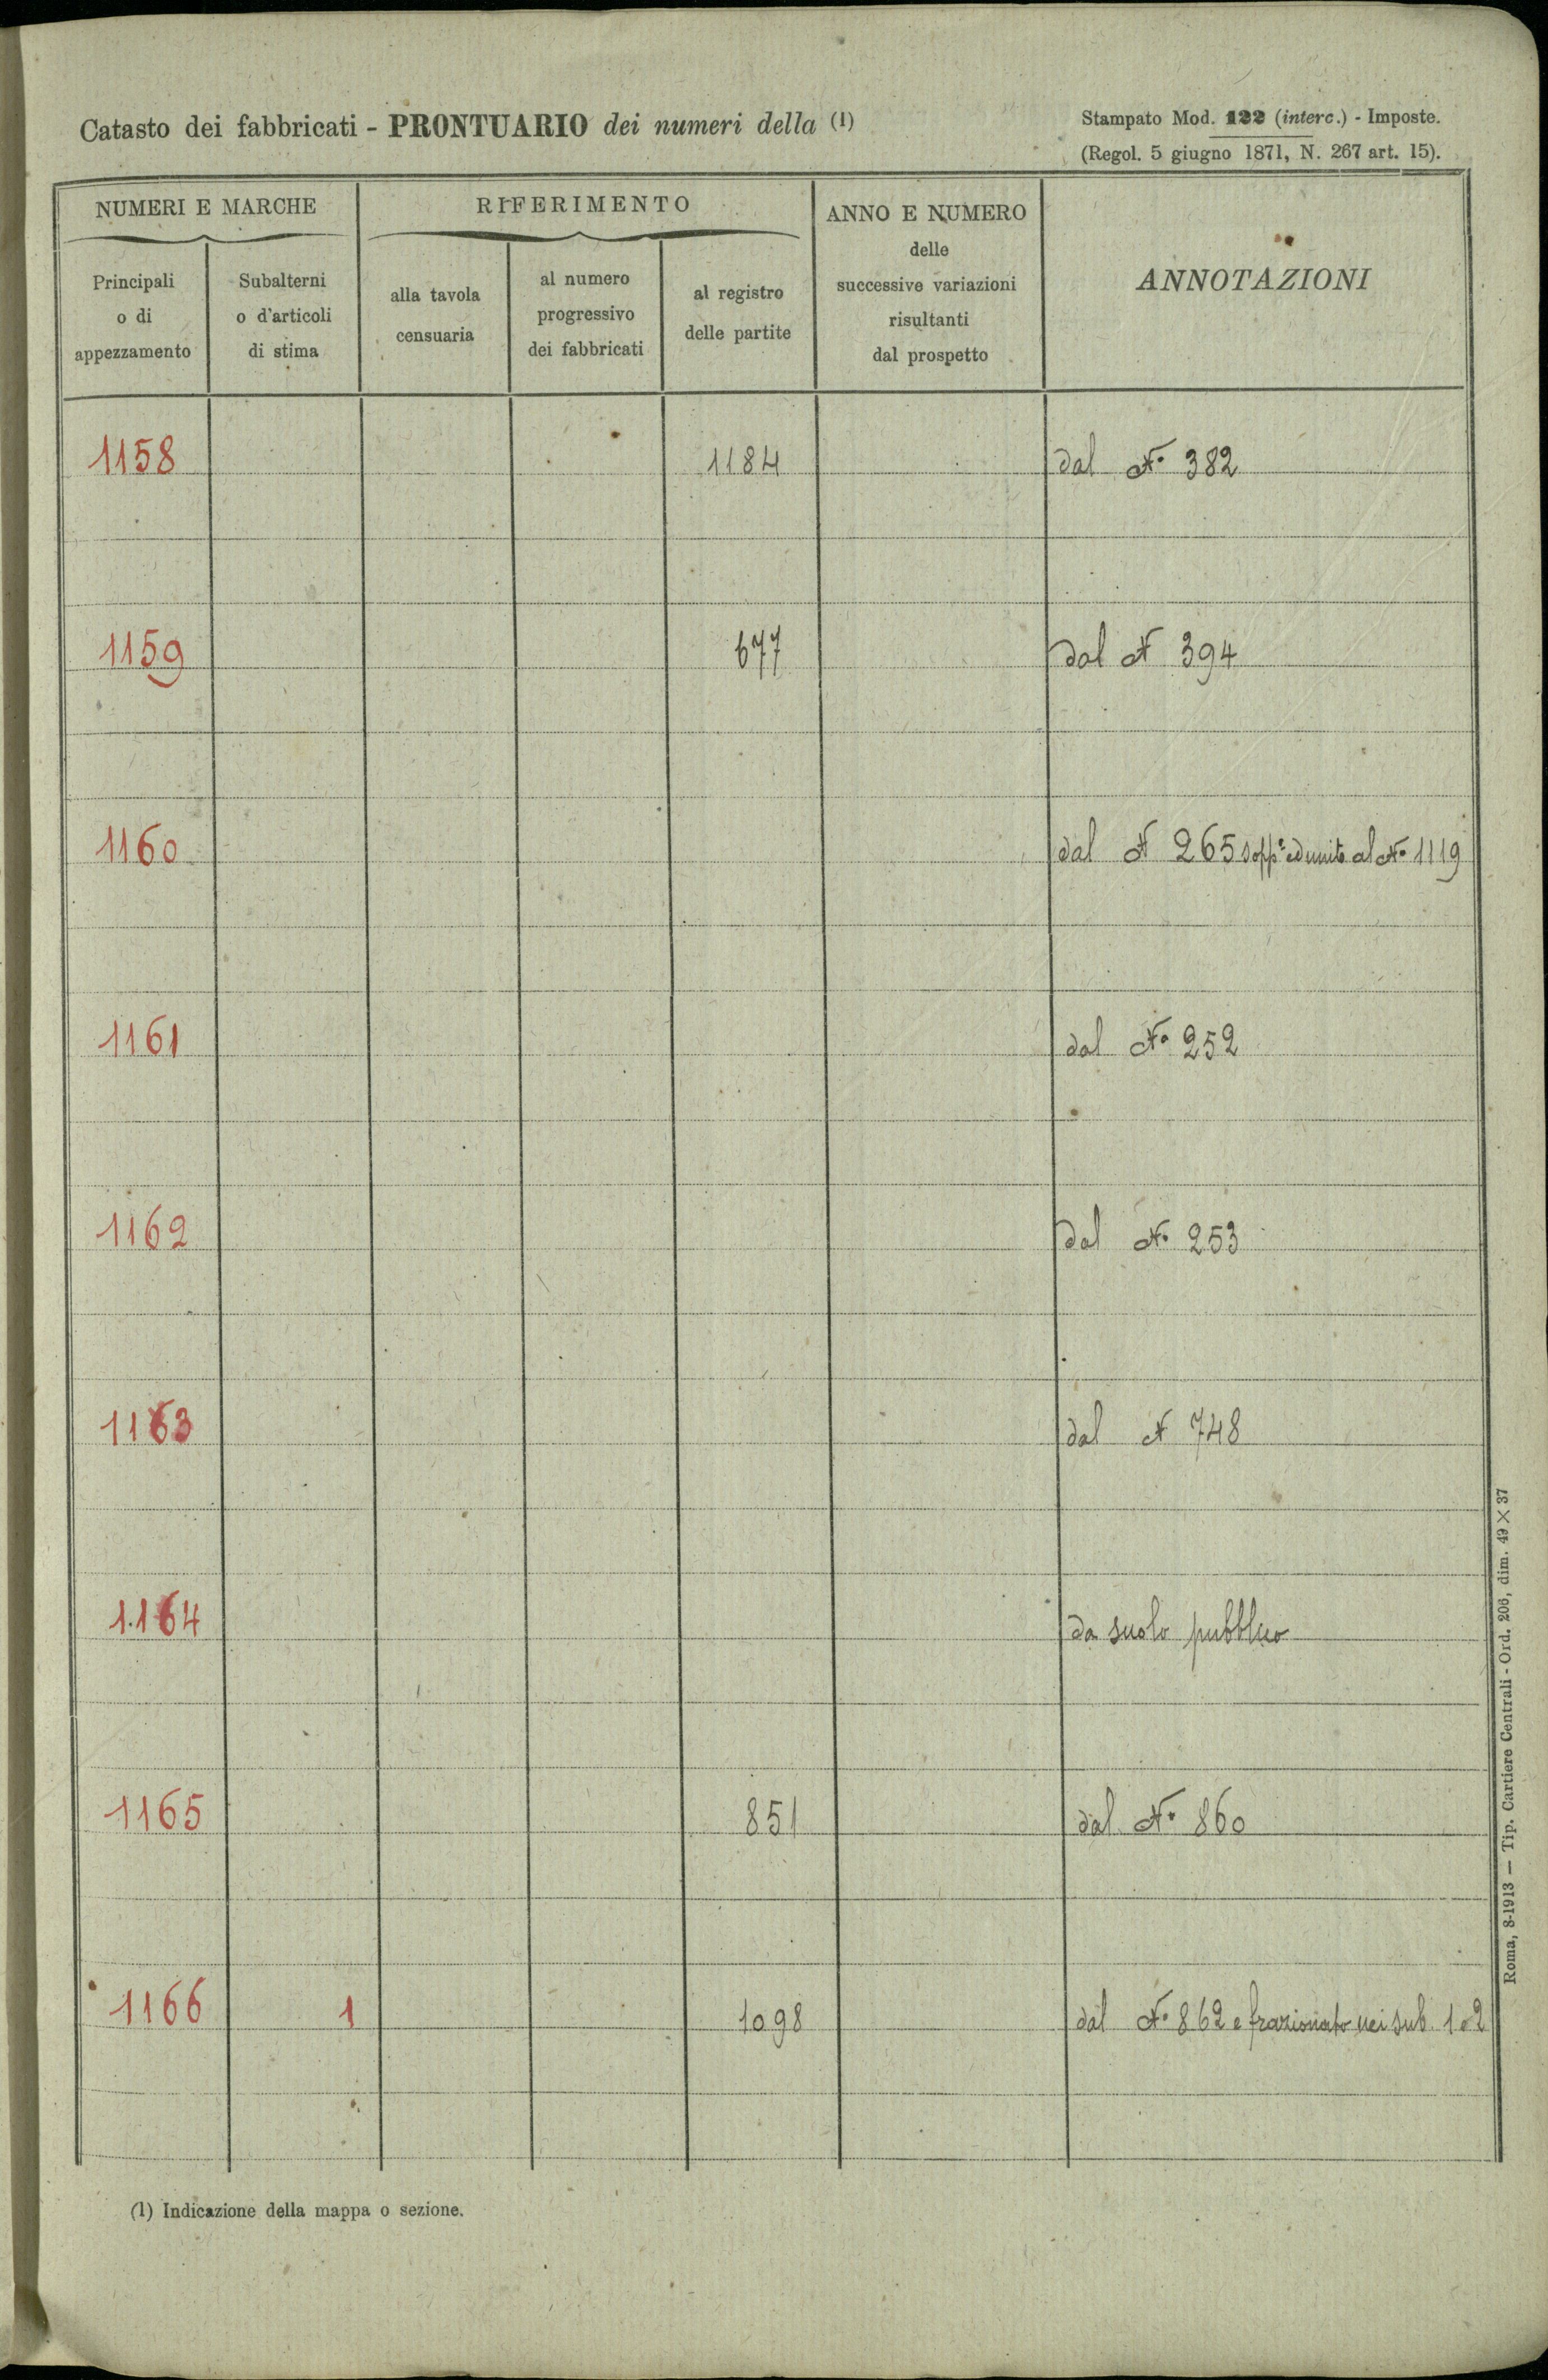 Catasto dei fabbricati - PRONTUARIO dei numeri della (1)
Stampato Mod. 122 (interc.) - Imposte.
(Regol. 5 giugno 1871, N. 267 art. 15).
NUMERI E MARCHE
RIFERIMENTO
ANNO E NUMERO
delle
successive variazioni
risultanti
dal prospetto
ANNOTAZIONI
Principali
o di
appezzamento
Subalterni
o d'articoli
di stima
alla tavola
censuaria
al numero
progressivo
dei fabbricati
al registro
delle partite
1158 1184 dal N° 382
1159 677 dal N 394
1160 dal N 265 sopp° ed unito al N° 1119
1161 dal N° 252
1162 dal N° 253
1163 dal N 748
1164 da suolo pubblico
1165 851 dal N° 860
1166 1 1098 dal N° 862 e frazionato nei sub. 1 e 2
(1) Indicazione della mappa o sezione.
Roma, 8-1913 — Tip. Cartiere Centrali - Ord. 206, dim. 49 × 37